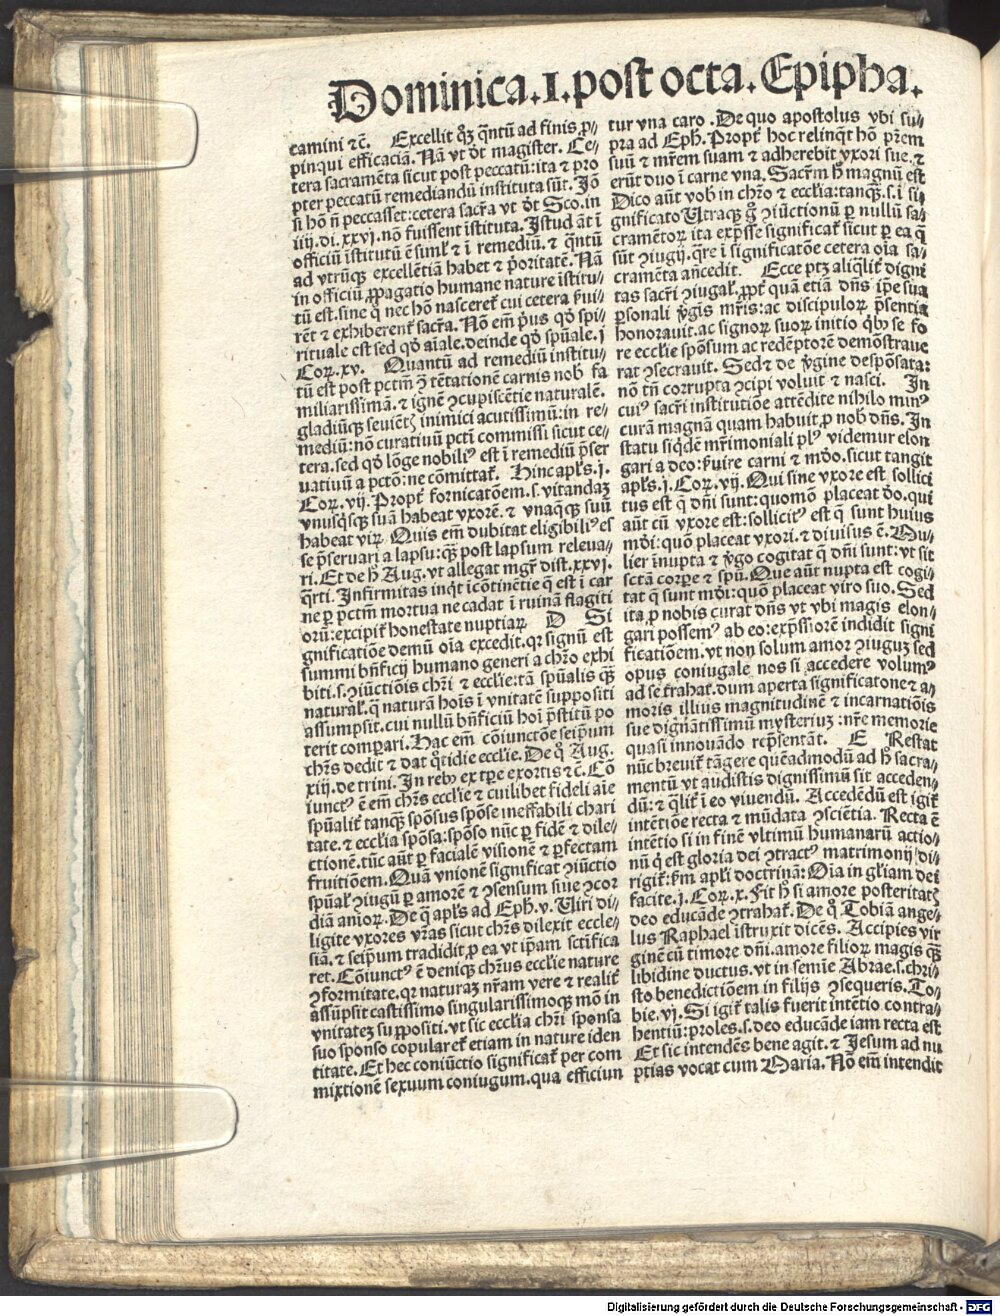 Dominica.I.post octa.Epipha.
camini ⁊c̄. Excellit qͦꝫ q̄ntū ad finis ꝓ-
pinqui efficaciā. Nā vt dt̄ magister. Ce-
tera sacramēta sicut post peccatū: ita ⁊ pro
pter peccatū remediandū instituta sūt. Iō
si hō nō peccasset: cetera sacr̄a vt dt̄ Sco. in
iiij. di. xxvi. nō fuissent īstituta. Istud āt ī
officiū īstitutū ē siml̄ ⁊ ī remediū. ⁊ q̄ntū
ad vtrūqꝫ excellētiā habet ⁊ p̄oritatē. Nā
in officiū ꝓpagatio humane nature īstitu-
tū est. sine q̄ nec hō nasceret᷑ cui cetera fui-
rēt ⁊ exhiberent᷑ sacr̄a. Nō em̄ p̄us qd̓ spi-
rituale est sed qd̓ aīale. deinde qd̓ spūale. i
Coꝝ. xv. Quantū ad remediū institu-
tū est post pctm̄ ꝯ̄ tētationē carnis nob̄ fa
miliarissimā. ⁊ ignē ꝯcupiscētie naturalē.
gladiūqꝫ seuiētꝭ inimici acutissimū: in re-
mediū: nō curatiuū pcti commissi sicut ce-
tera. sed qd̓ lōge nobiliꝰ est ī remediū p̄ser
uatiuū a pctō: ne cōmittat᷑. Hinc apl̄s. i.
Coꝝ. vij. Propt̄ fornicatōem. s. vitandaꝫ
vnusq̄sqꝫ suā habeat vxorē. ⁊ vnaq̄qꝫ suū
habeat viꝝ. Quis em̄ dubitat eligibiliꝰ es
se p̄seruari a lapsu: qꝫ̄ post lapsum releua-
ri. Et de h̄ Aug. vt allegat mgr̄ dist. xxvi.
q̄rti. Infirmitas inqͥt īcōtinētie q̄ est ī car
ne ꝑ pctm̄ mortua ne cadat ī ruinā flagiti
orū: excipit᷑ honestate nuptiaꝝ D Si
gnificatiōe demū oīa excedit. qꝛ signū est
summi bn̄ficij humano generi a chr̄o exhi
biti. s. ꝯiūctiōis chr̄i ⁊ eccl̄ie: tā spūalis qꝫ̄
natural̄. q̄ naturā hoīs ī vnitatē suppositi
assumpsit. cui nullū bn̄ficiū hoī p̄stitū po
terit comꝑari. Hac em̄ cōiunctōe seip̄um
chr̄s dedit ⁊ dat qͦtidie eccl̄ie. De qͦ Aug.
xiij. de trini. In rebꝰ ex tꝑe exortis ⁊c̄. Cō
iunctꝰ ē em̄ chr̄s eccl̄ie ⁊ cuilibet fideli aīe
spūalit᷑ tanqꝫ̄ spōsus spōse ineffabili chari
tate. ⁊ eccl̄ia spōsa: spōso nūc ꝑ fidē ⁊ dile-
ctionē. tūc aūt ꝑ facialē visionē ⁊ ꝑfectam
fruitiōem. Quā vnionē significat ꝯiūctio
spūal̄ ꝯiugū ꝑ amorē ⁊ ꝯsensum siue ꝯcor
diā amoꝝ. De q̄ apl̄s ad Eph. v. Viri di-
ligite vxores vr̄as sicut chr̄s dilexit eccle-
siā. ⁊ seip̄um tradidit ꝓ ea vt ip̄am sctifica
ret. Cōiunctꝰ ē deniqꝫ chr̄us eccl̄ie nature
ꝯformitate. qꝛ naturaꝫ nr̄am vere ⁊ realit᷑
assūpsit castissimo singularissimoqꝫ mō in
vnitateꝫ suꝓpositi. vt sic eccl̄ia chr̄i sponsa
suo sponso copularet᷑ etiam in nature iden
titate. Et hec coniūctio significat᷑ per com
mixtionē sexuum coniugum. qua efficiun
tur vna caro. De quo apostolus vbi su-
pra ad Eph. Propt̄ hoc relinqt̄ hō pr̄em
suū ⁊ mr̄em suam ⁊ adherebit vxori sue. ⁊
erūt duo ī carne vna. Sacr̄m h̄ magnū est
Dico aūt vob̄ in chr̄o ⁊ eccl̄ia: tanqꝫ̄. s. ī si
gnificato Utraqꝫ gͦ ꝯiūctionū ꝑ nullū sa-
cramētoꝝ ita exp̄sse significat᷑ sicut ꝑ ea q̄
sūt ꝯiugij. qr̄e ī significatōe cetera oīa sa-
cramēta an̄cedit. Ecce ptꝫ aliq̄lit᷑ digni
tas sacr̄i ꝯiugal̄. ꝓpt̄ quā etiā dn̄s ip̄e sua
ꝑsonali v̄gīs mr̄is: ac discipuloꝝ p̄sentia
honorauit. ac signoꝝ suoꝝ initio qͥbꝰ se fo
re eccl̄ie spōsum ac redēptorē demōstraue
rat ꝯsecrauit. Sed ⁊ de v̄gine despōsata:
nō tn̄ corrupta ꝯcipi voluit ⁊ nasci. In
cuiꝰ sacr̄i institutiōe attēdite nihilo minꝰ
curā magnā quam habuit ꝓ nob̄ dn̄s. In
statu siqͥdē mr̄imoniali plꝰ videmur elon
gari a deo: ẜuire carni ⁊ mdͦo. sicut tangit
apl̄s. i. Coꝝ. vij. Qui sine vxore est. sollici
tus est q̄ dn̄i sunt: quomō placeat do. qui
aūt cū vxore est: sollicitꝰ est q̄ sunt huius
mdi: quō placeat vxori. ⁊ diuisus ē. Mu-
lier īnupta ⁊ v̄go cogitat q̄ dn̄i sunt: vt sit
sctā corꝑe ⁊ spū. Que aūt nupta est cogi-
tat q̄ sunt mdi: quō placeat viro suo. Sed
ita ꝓ nobis curat dn̄s vt vbi magis elon-
gari possemꝰ ab eo: exp̄ssiorē indidit signi
ficatiōem. vt non solum amor ꝯiuguꝫ sed
opus coniugale nos si accedere volumꝰ
ad se trahat. dum aperta significatone ⁊ a-
moris illius magnitudinē ⁊ incarnatiōis
sue dignātissimū mysteriuꝫ: nr̄e memorie
quasi innouādo rep̄sentāt. E Restat
nūc breuit᷑ tāgere quēadmodū ad h̄ sacra-
mentū vt audistis dignissimū sit acceden-
dū: ⁊ q̄lit᷑ ī eo viuendū. Accedēdū est igit᷑
intētiōe recta ⁊ mūdata ꝯsciētia. Recta ē
intētio si in finē vltimū humanarū actio-
nū q̄ est gloria dei ꝯtractꝰ matrimonij di-
rigit᷑: ẜm apl̄i doctrinā: Oīa in gl̄iam dei
facite. i. Coꝝ. x. Fit h̄ si amore posteritatꝭ
deo educāde ꝯtrahat᷑. De qͦ Tobiā ange-
lus Raphael īstruxit dicēs. Accipies vir
ginē cū timore dn̄i. amore filioꝝ magis qꝫ̄
libidine ductus. vt in semīe Abrae. s. chri-
sto benedictiōem in filijs ꝯsequeris. To-
bie. vi. Si igit᷑ talis fuerit intētio contra-
hentiū: ꝓles. s. deo educāde iam recta est
Et sic intendēs bene agit. ⁊ Jesum ad nu
ptias vocat cum Maria. Nō em̄ intendit
Digitalisierung gefördert durch die Deutsche Forschungsgemeinschaft - DFG